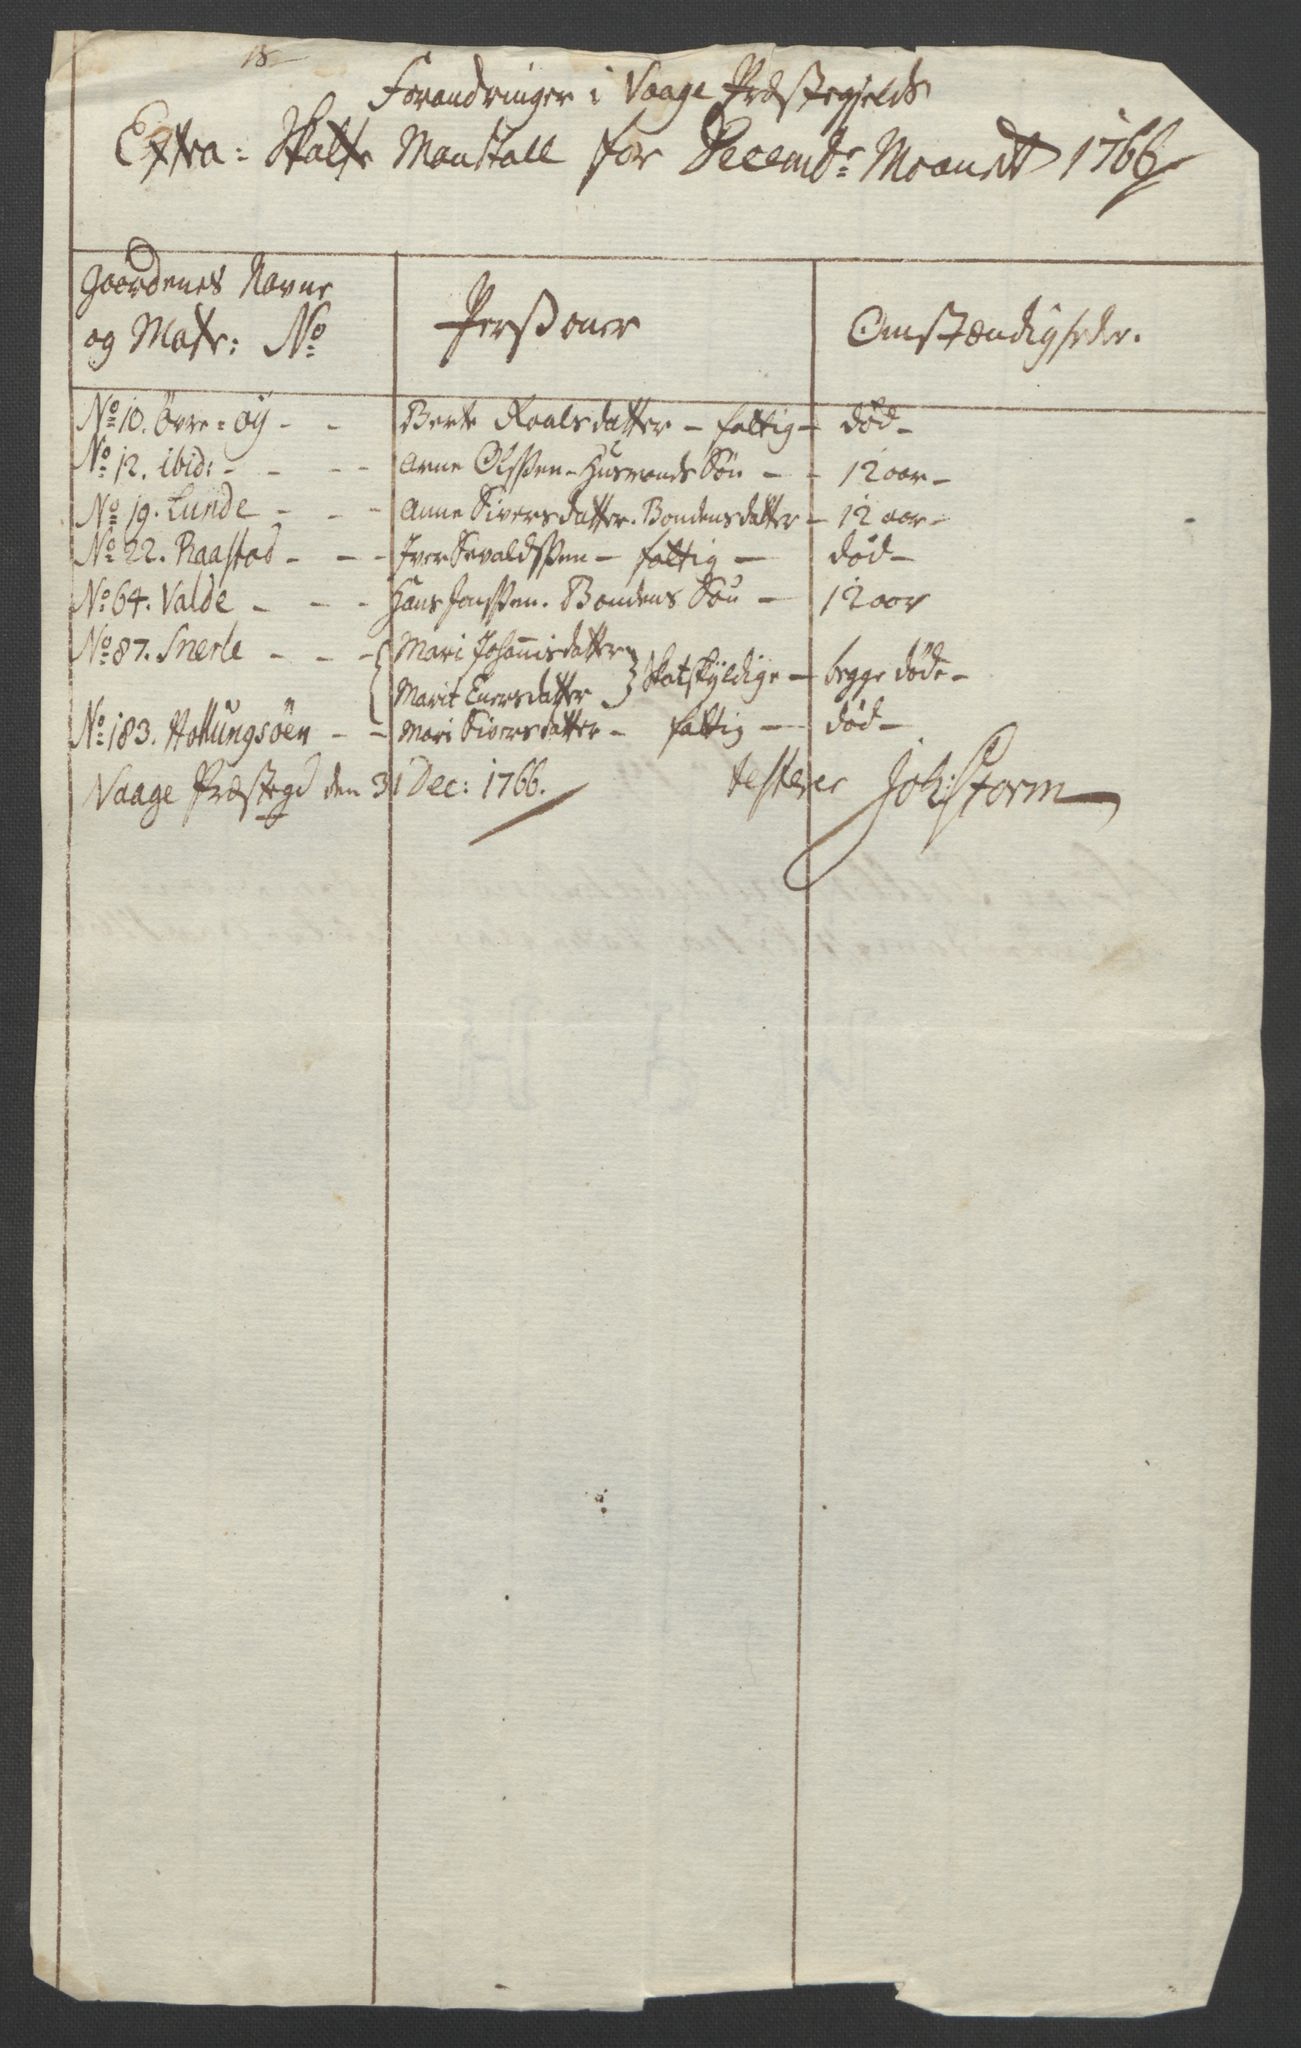 18
Forandringer i Vaage Præstegjelds
Extra: Skatte Mantall for Decembr: Maanet 1766
Gaardenes Navne
og Matr: No
Perssoner
Omstændigheder.
No 10. Øvre = öy - - Berte Roalsdatter - fattig - død -
No 12. ibid: - - - - Arne Olssen - Husmands Søn - - 12 aar -
No 19. Lunde - - - Anne Siversdatter. Bondens datter - 12 aar -
No 22. Raastad - - - Iver Sevaldssen - fattig - død -
No 64. Valde - - - Hans Jonssen. Bondens Søn - 12 aar
No 87. Snerle - - - { Mari Johannisdatter
Marit Enersdatter } Skatskyldige - begge døde -
No 183. Hollungsöen - - Mari Siversdatter - fattig - død -
Vaage Præstegd den 31 Dec: 1766. testerer Joh: Storm